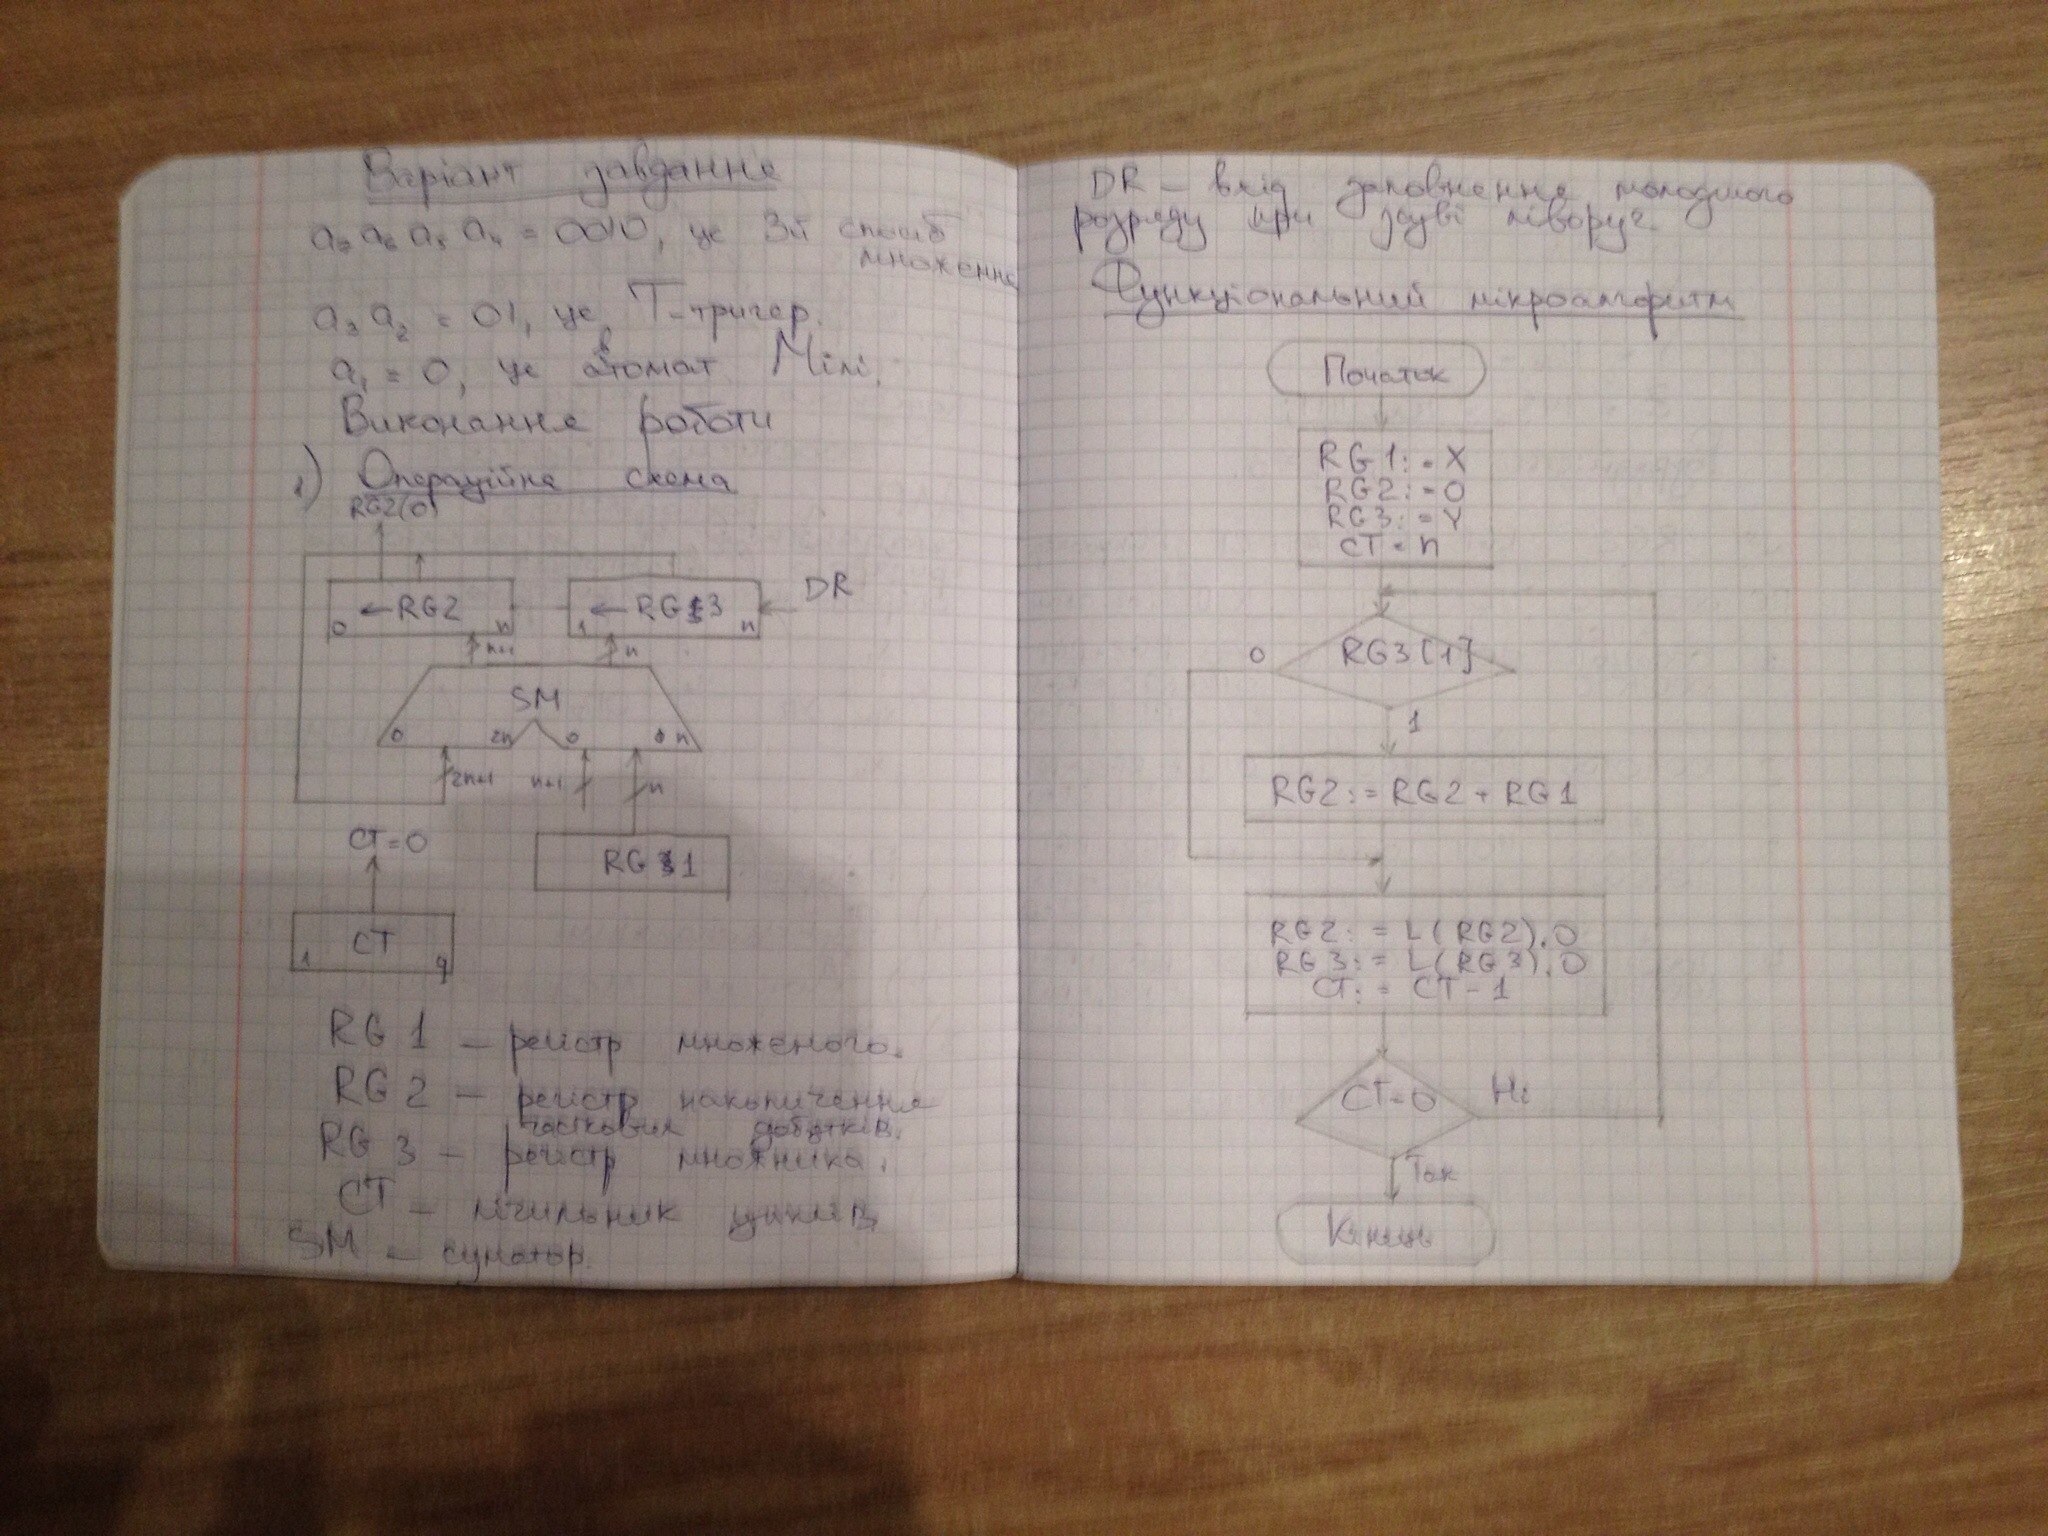 Варіант завдання
a₆ a₅ a₄ = 0010, це 3й спосіб
множення
a₃ a₂ = 01, це Т-тригер.
a₁ = 0, це автомат Мілі.
Виконання роботи
1) Операційна схема
RG2(0)
←RG2
0 n
←RG3
1 n
DR
n+1
n
SM
0 2n 0 n
2n+1
n+1
n
CT=0
RG1
CT
1 q
RG1 – регістр множеного.
RG2 – регістр накопичення
часткових добутків.
RG3 – регістр множника.
CT – лічильник циклів
SM – суматор.
DR – вхід заповнення молодшого
розряду при зсуві ліворуч.
Функціональний мікроалгоритм
Початок
RG1:=X
RG2:=0
RG3:=Y
CT=n
RG3[1]
0
1
RG2:=RG2+RG1
RG2:=L(RG2).0
RG3:=L(RG3).0
CT:=CT-1
CT=0
Ні
Так
Кінець